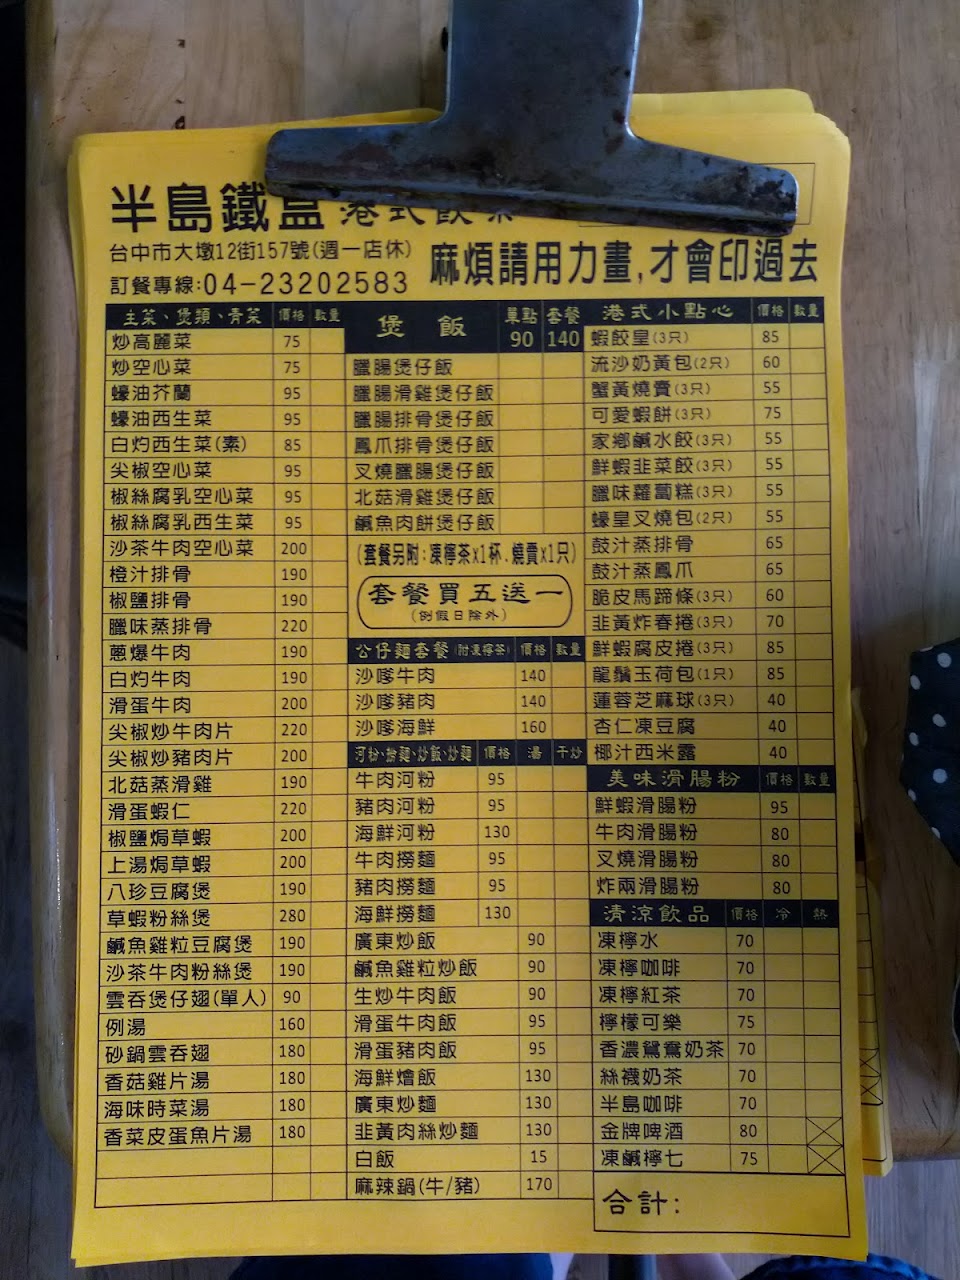 半島鐵盒 港式飲茶
台中市大墩12街157號(週一店休)
訂餐專線:04-23202583
麻煩請用力畫,才會印過去
主菜、煲類、青菜 價格 數量
炒高麗菜 75
炒空心菜 75
蠔油芥蘭 95
蠔油西生菜 95
白灼西生菜(素) 85
尖椒空心菜 95
椒絲腐乳空心菜 95
椒絲腐乳西生菜 95
沙茶牛肉空心菜 200
橙汁排骨 190
椒鹽排骨 190
臘味蒸排骨 220
蔥爆牛肉 190
白灼牛肉 190
滑蛋牛肉 190
尖椒炒牛肉片 220
尖椒炒豬肉片 200
北菇蒸滑雞 190
滑蛋蝦仁 220
椒鹽焗草蝦 200
上湯焗草蝦 200
八珍豆腐煲 190
草蝦粉絲煲 280
鹹魚雞粒豆腐煲 190
沙茶牛肉粉絲煲 190
雲吞煲仔翅(單人) 90
例湯 160
砂鍋雲吞翅 180
香菇雞片湯 180
海味時菜湯 180
香菜皮蛋魚片湯 180
煲飯 單點 90 套餐 140
臘腸煲仔飯
臘腸滑雞煲仔飯
臘腸排骨煲仔飯
鳳爪排骨煲仔飯
叉燒臘腸煲仔飯
北菇滑雞煲仔飯
鹹魚肉餅煲仔飯
(套餐另附:凍檸茶x1杯.燒賣x1只)
套餐買五送一
(例假日除外)
公仔麵套餐(附凍檸茶) 價格 數量
沙嗲牛肉 140
沙嗲豬肉 140
沙嗲海鮮 160
河粉、撈麵、炒飯、炒麵 價格 湯 干炒
牛肉河粉 95
豬肉河粉 95
海鮮河粉 130
牛肉撈麵 95
豬肉撈麵 95
海鮮撈麵 130
廣東炒飯 90
鹹魚雞粒炒飯 90
生炒牛肉飯 90
滑蛋牛肉飯 95
滑蛋豬肉飯 95
海鮮燴飯 130
廣東炒麵 130
韭黃肉絲炒麵 130
白飯 15
麻辣鍋(牛/豬) 170
港式小點心 價格 數量
蝦餃皇(3只) 85
流沙奶黃包(2只) 60
蟹黃燒賣(3只) 55
可愛蝦餅(3只) 75
家鄉鹹水餃(3只) 55
鮮蝦韭菜餃(3只) 55
臘味蘿蔔糕(3只) 55
蠔皇叉燒包(2只) 55
鼓汁蒸排骨 65
鼓汁蒸鳳爪 65
脆皮馬蹄條(3只) 60
韭黃炸春捲(3只) 70
鮮蝦腐皮捲(3只) 85
龍鬚玉荷包(1只) 85
蓮蓉芝麻球(3只) 40
杏仁凍豆腐 40
椰汁西米露 40
美味滑腸粉 價格 數量
鮮蝦滑腸粉 95
牛肉滑腸粉 80
叉燒滑腸粉 80
炸兩滑腸粉 80
清涼飲品 價格 冷 熱
凍檸水 70
凍檸咖啡 70
凍檸紅茶 70
檸檬可樂 75
香濃鴛鴦奶茶 70
絲襪奶茶 70
半島咖啡 70
金牌啤酒 80
凍鹹檸七 75
合計: